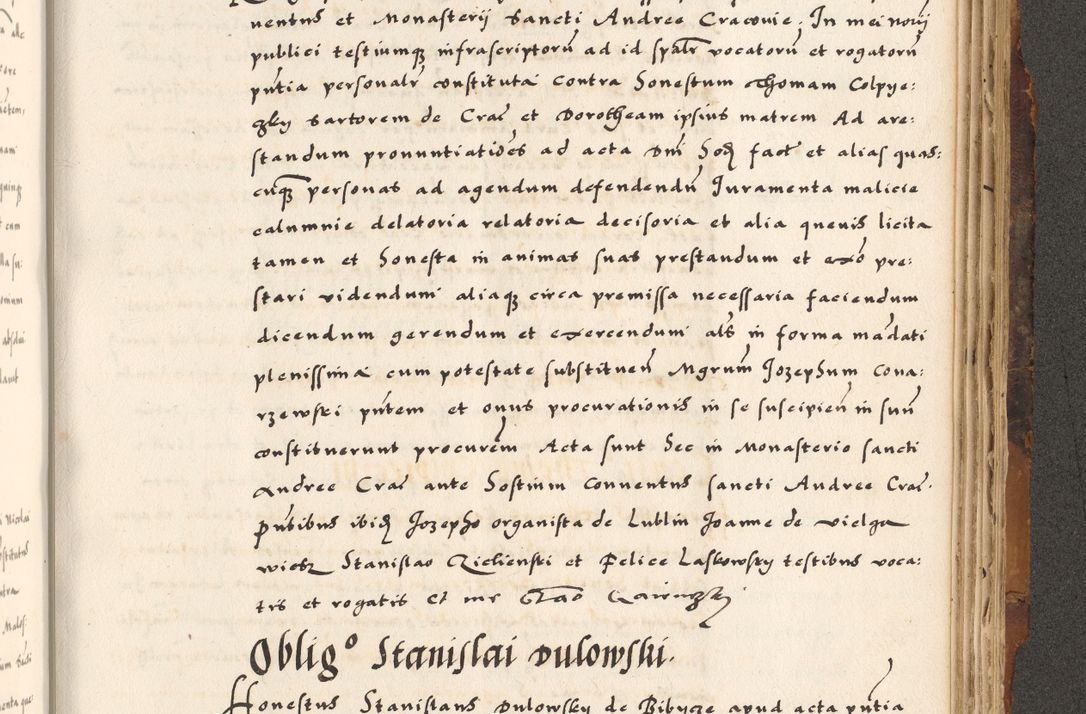 uentus et Monasterij Sancti Andree Cracouie. In mei notarij
publici testiumq; infrascriptorũ ad id spãlr vocatorũ et rogatorũ
pñtia personalr constituta contra Honestum Thomam Colpye:
zky Sartorem de Crac et Dorotheam ipsius matrem Ad are:
standum pronuntiatões ad acta Dni fact et alias quas:
cuq; personas ad agendum defendendũ Iuramenta malicie
calumnie delatoria relatoria decisoria et alia queuis licita
tamen et honesta in animas suas prestandum et pre:
stari videndum aliaq; circa premissa necessaria faciendum
dicendum gerendum et exercendum als in forma mãdati
plenissima cum potestate substituen̄ Mgrum̄ Jozephum Cona:
rzewski pñtem et onus procurationis in se suscipien̄ in suũ
constituerunt procurem̄ Acta sunt hec in Monasterio sancti
Andree Crac ante hostium Conuentus sancti Andree Crac.
pñtibus ibid Jozepho organista de Lublin Joanne de vielga
wiesz Stanislao Zielienski et Felice Laskowsky testibus voca:
tis et rogatis Et me
Oblig° Stanislai Dulowski.
Honestus Stanislaus Dulowsky de Bibycze apud acta pñtia